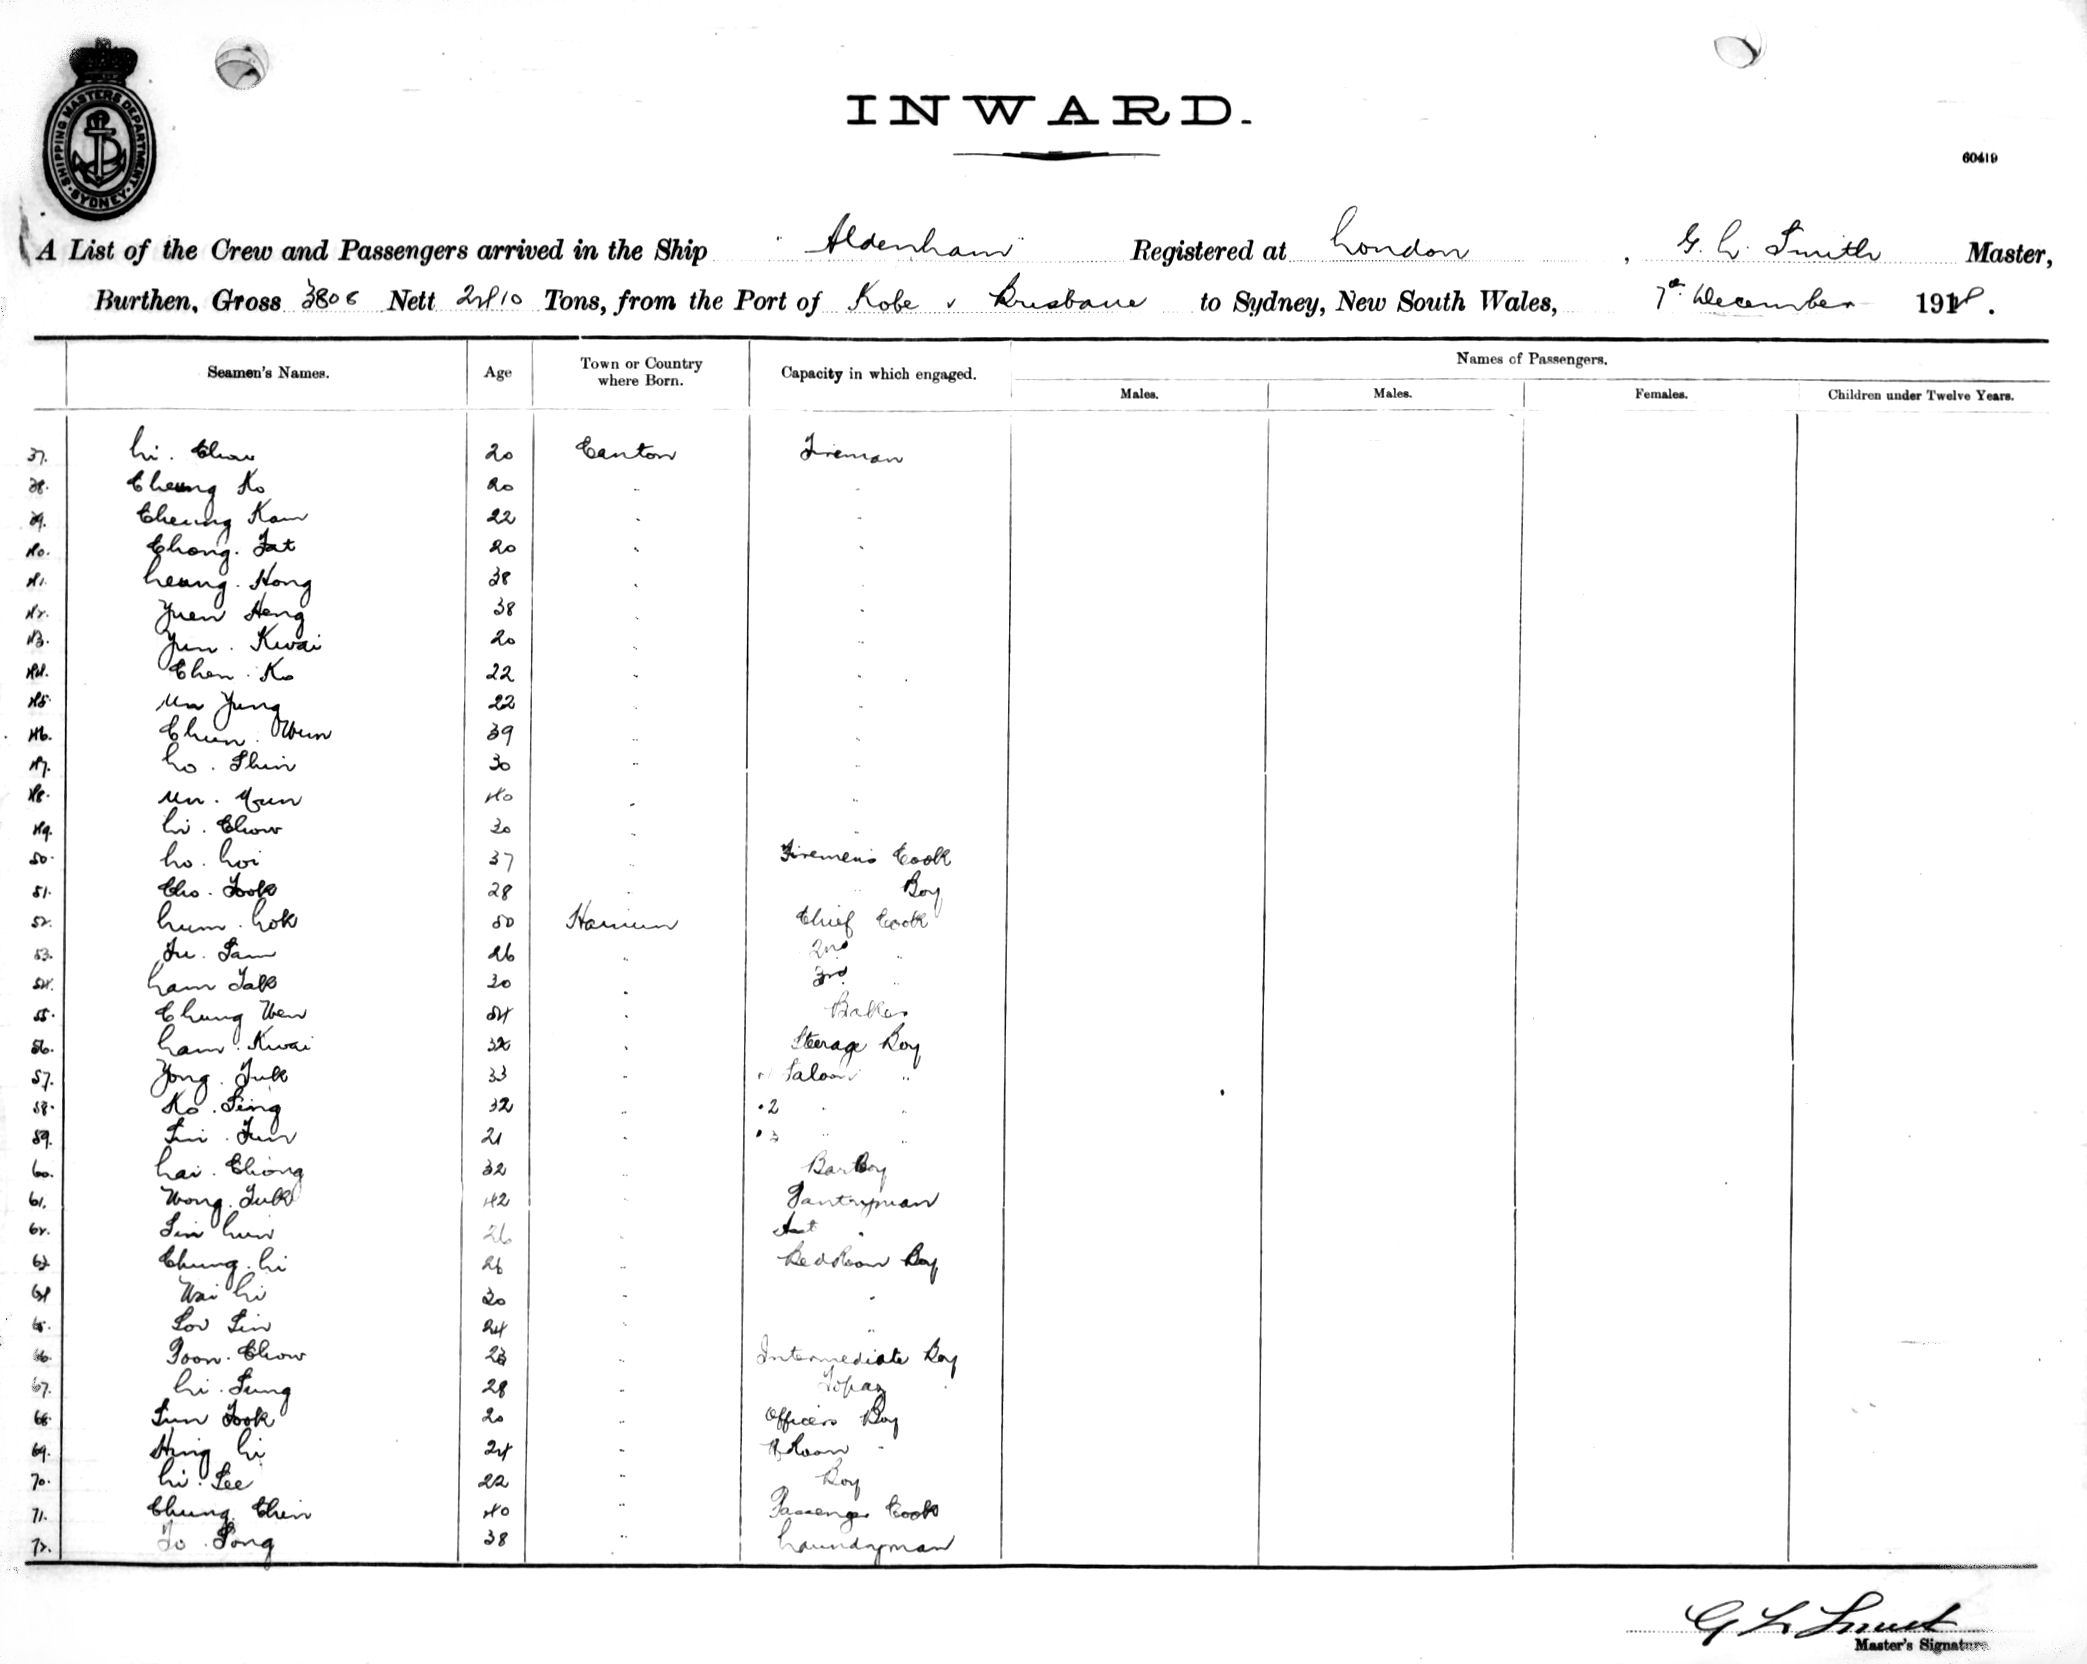 SHIPPING MASTERS DEPARTMENT. SYDNEY
INWARD.
60419
A List of the Crew and Passengers arrived in the Ship "Aldenham" Registered at London, G. L. Smith Master,
Burthen, Gross 3808 Nett 2410 Tons, from the Port of Kobe v Brisbane to Sydney, New South Wales, 7th December 1918.
Seamen's Names. Age Town or Country where Born. Capacity in which engaged. Names of Passengers.
Males. Males. Females. Children under Twelve Years.
37. Li. Chow 20 Canton Fireman
38. Cheung Ko 20 " "
39. Cheung Kam 22 " "
40. Chong. Fat 20 " "
41. Leung. Hong 38 " "
42. Yuen Heng 38 " "
43. Yun. Kwai 20 " "
44. Chan. Ko 22 " "
45. Un Yung 22 " "
46. Chun. Wun 39 " "
47. Lo. Shin 30 " "
48. Un. 40 " "
49. Li. Chow 30 " "
50. Lo. Loi 37 " Firemen's Cook
51. Cho. Fook 28 " " Boy
52. Lum. Lok 50 Chief Cook
53. Fu. Sam 26 " 2nd "
54. Lam Tak 30 " 3rd "
55. Chung Wen 54 " Baker
56. Lam. Kwai 32 " Steerage Boy
57. Yong. Fuk 33 " Saloon "
58. Ko. Sing 32 " " 2 " "
59. Sin. Fun 21 " " 3 " "
60. Lai. Chong 32 " Bar Boy
61. Wong. Fuk 42 " Pantryman
62. Sin Lun 26 " Asst "
63. Chung. Li 26 " Bedroom Boy
64 Wai Li 30 " "
65. Sow Sin 24 " "
66. Poon. Chow 23 " Intermediate Boy
67. Li. Sung 28 " Topaz
68. Sun Fook 20 " Officers Boy
69. Hing Li 24 " Room "
70. Li. See 22 " Boy
71. Chung. Chin 40 " Passenger Cook
72. To. Song 38 " Laundryman
G L Smith
Master's Signature